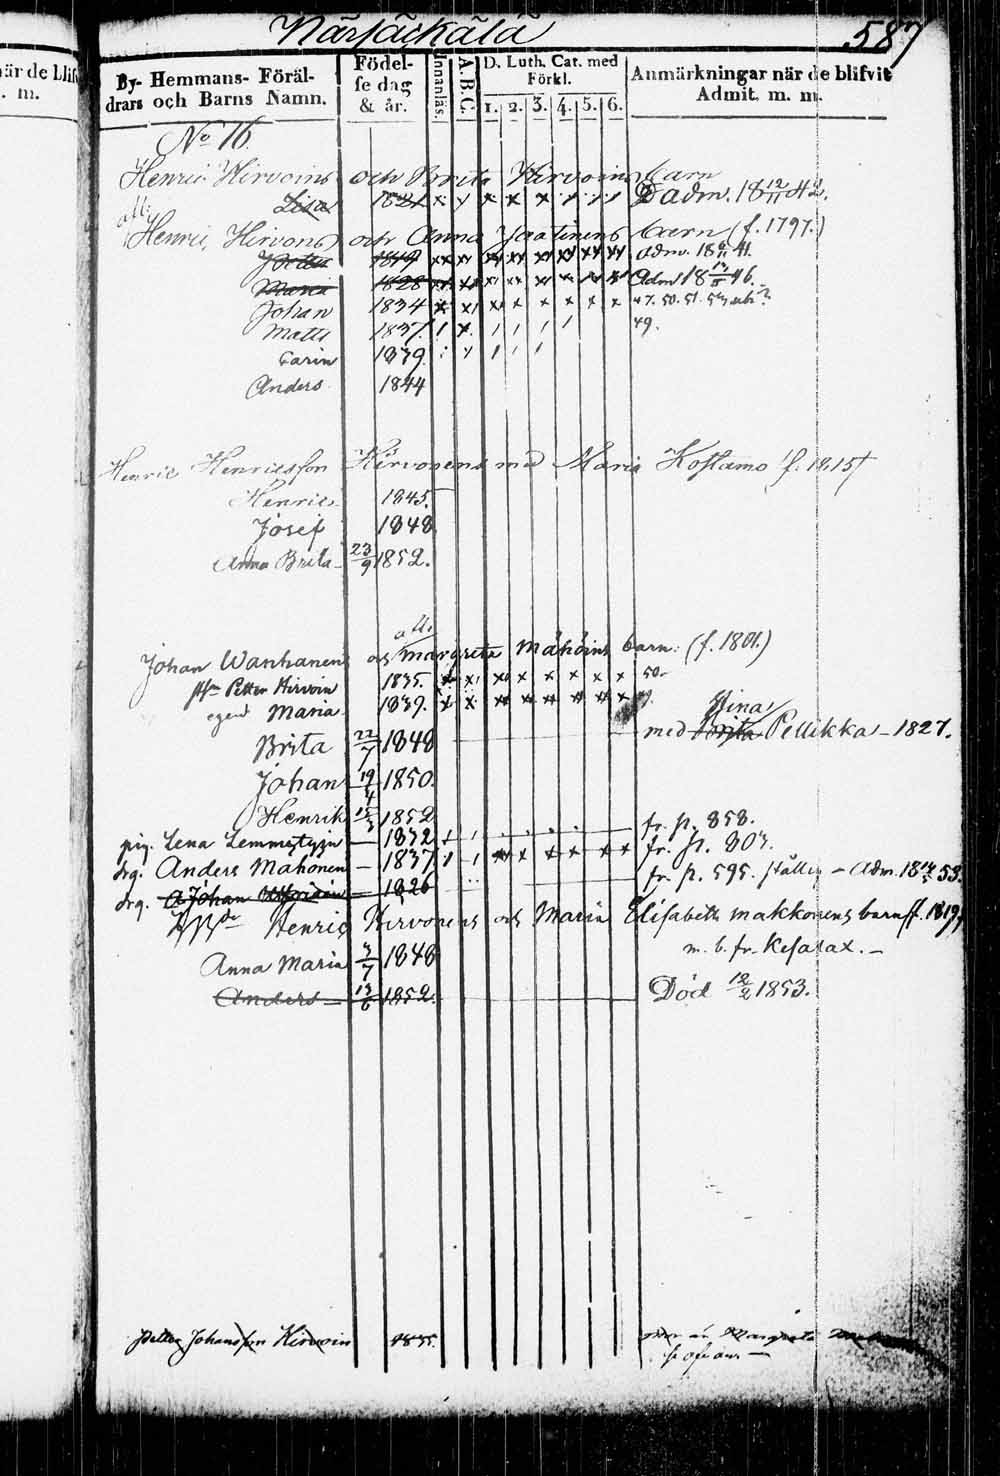 när de blif
. m.
Närsäckälä 587
By- Hemmans- Föräl-
drars och Barns Namn.
Födel-
se dag
& år.
Innanläs.
A. B. C.
D. Luth. Cat. med
Förkl.
1. 2. 3. 4. 5. 6.
Anmärkningar när de blifvit
Admit. m. m.
No 76.
Henric Hirvoins och Brita Hirvoins barn
Lisa 1821 adm. 18 12/11 42.
Henric Hirvons och Anna Jaatinens barn (f. 1797.)
Petter 1819 adm. 18 6/11 41.
Maria 1828 Adm 18 46.
Johan 1834 47. 50. 51.
Matts 1837. 49.
Carin 1839.
Anders 1844
Henric Henricsson Hirvonens med Maria Kostamo f. 1815
Henric 1845.
Josef 1848
Anna Brita 23/9 1852.
all.
Johan Wanhanens och Margreta Mähöins barn: (f. 1801.)
Petter Hirvoin 1835. 50.
Maria 1839. 49.
Stina
med Brita Pellikka – 1827.
Brita 22/7 1848
Johan 19/4 1850.
Henrik 15/3 1852
pig. Lena Lemmettyin – 1832 fr. p. 858.
drg. Anders Mahonen – 1837 fr. p. 803.
drg. A Johan – 1826 fr. p. 595. – Adm. 18 53.
Henric Hirvonens och Maria Elisabeth Makkonens barn f. 1819
m. b. fr. Kesalax. –
Anna Maria 3/7 1848
Anders – 13/6 1852. Död 12/2 1853.
Petter Johansson Hirvoin 1835. Margreta